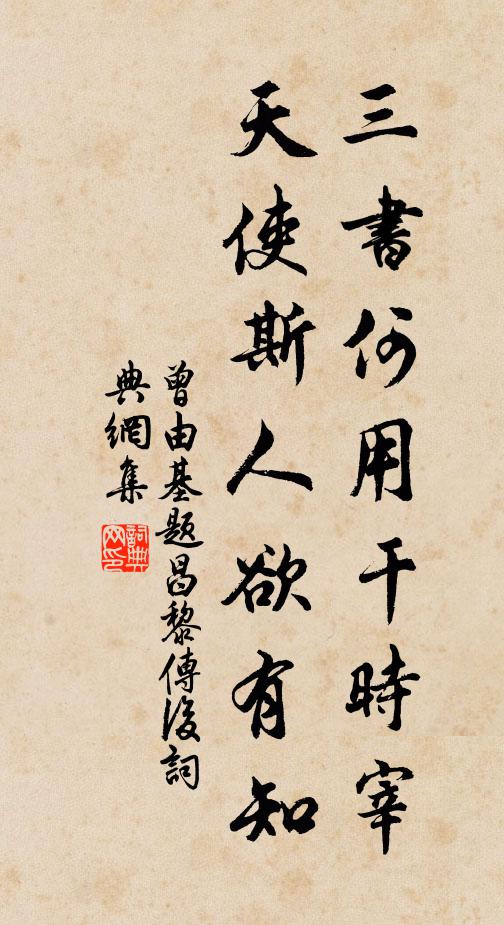 三書何用干時宰
天使斯人欲有知
曾由基題昌黎傳後詞
典網集
詞典
網印